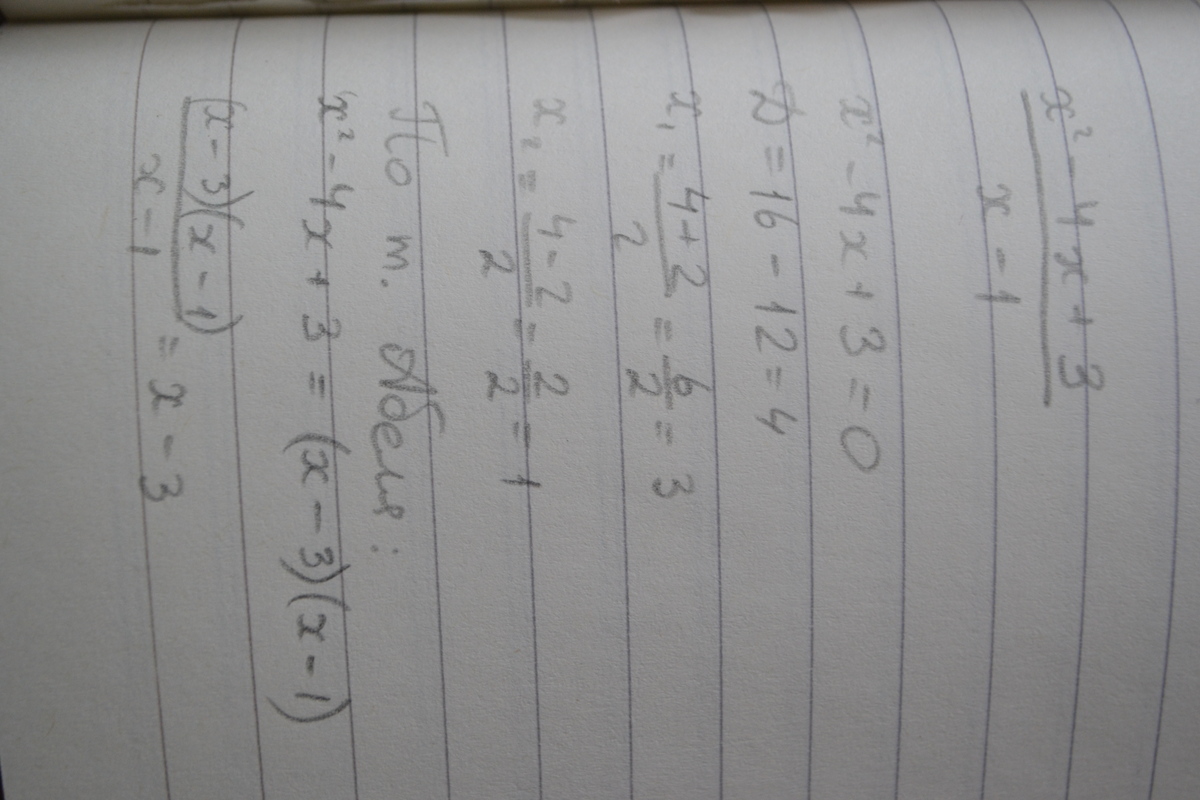 x² - 4x + 3
x - 1
x² - 4x + 3 = 0
D = 16 - 12 = 4
x₁ = (4 + 2)/2 = 6/2 = 3
x₂ = (4 - 2)/2 = 2/2 = 1
По т. Абеля:
x² - 4x + 3 = (x - 3)(x - 1)
(x - 3)(x - 1)/(x - 1) = x - 3